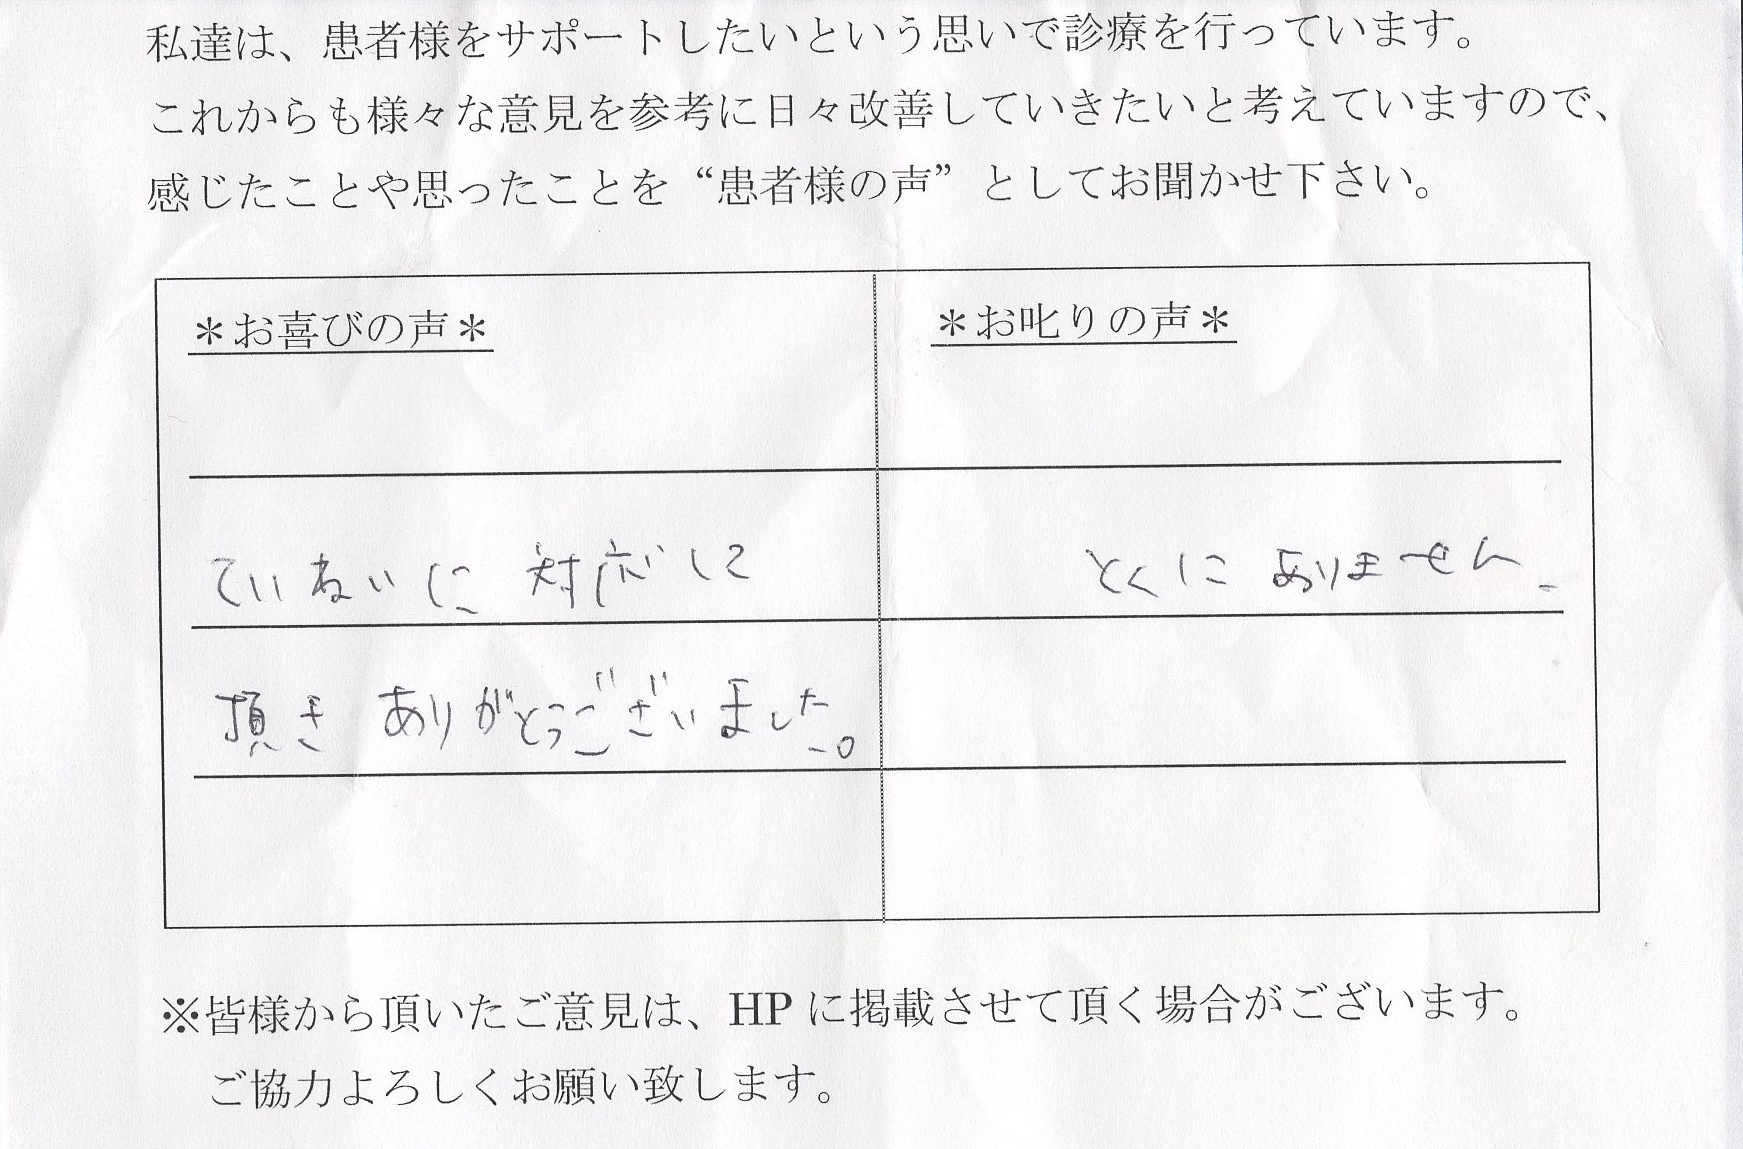 私達は、患者様をサポートしたいという思いで診療を行っています。
これからも様々な意見を参考に日々改善していきたいと考えていますので、
感じたことや思ったことを“患者様の声”としてお聞かせ下さい。
＊お喜びの声＊
ていねいに 対応して
頂き ありがとうございました。
＊お叱りの声＊
とくに ありません。
※皆様から頂いたご意見は、HPに掲載させて頂く場合がございます。
ご協力よろしくお願い致します。